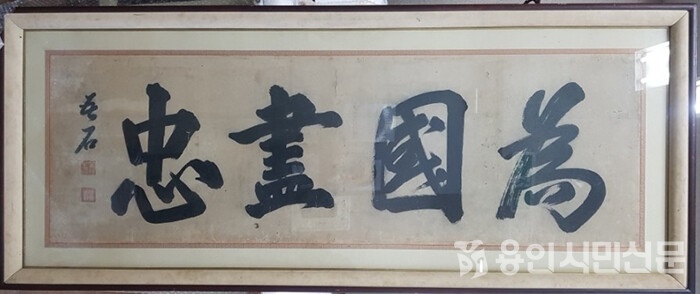 為國盡忠
吾石
용인시민신문